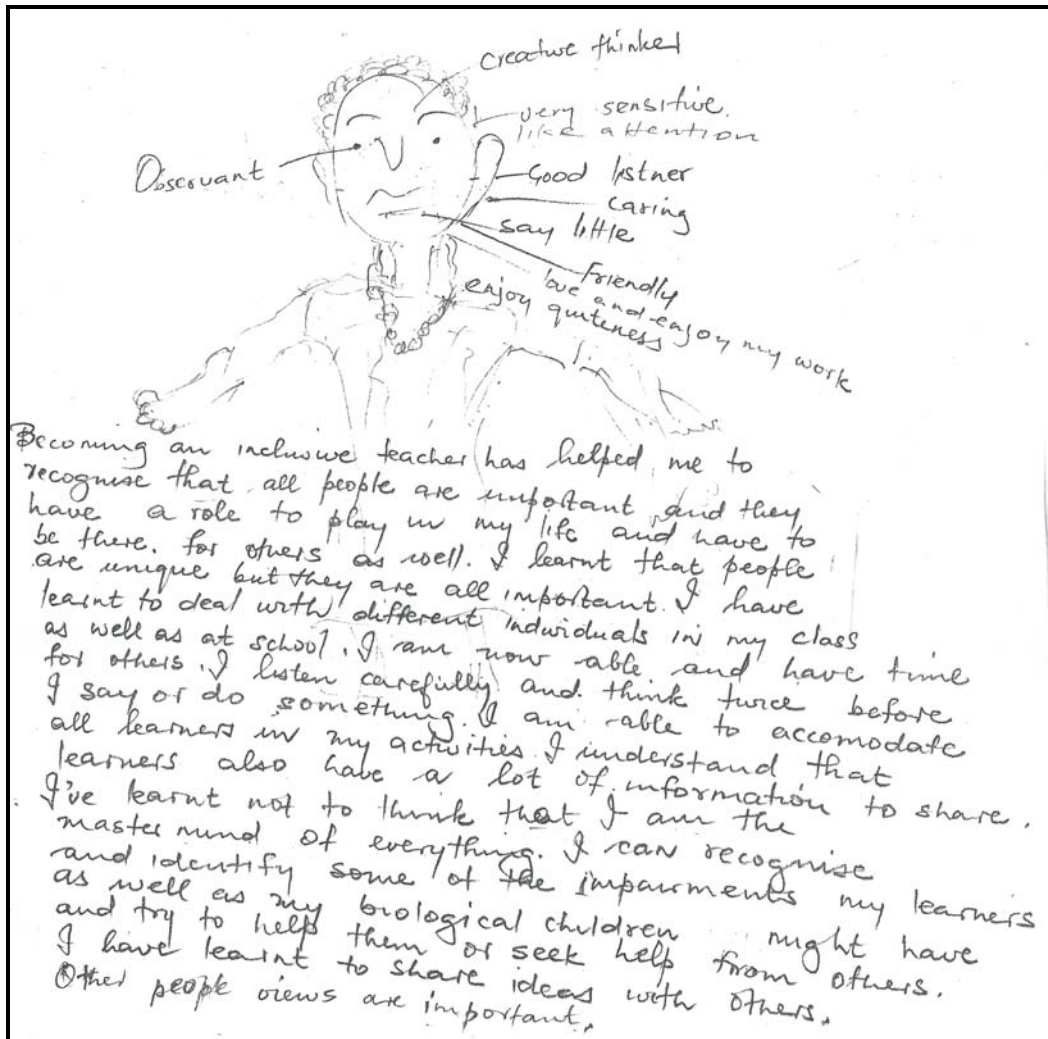 creative thinker
very sensitive.
like attention
Observant
Good listner
caring
say little
Friendly
love and enjoy my work
enjoy quiteness
Becoming an inclusive teacher has helped me to
recognise that all people are important and they
have a role to play in my life and have to
be there. for others as well. I learnt that people
are unique but they are all important. I have
learnt to deal with different individuals in my class
as well as at school. I am now able and have time
for others. I listen carefully and think twice before
I say or do something. I am able to accomodate
all learners in my activities. I understand that
learners also have a lot of information to share.
I've learnt not to think that I am the
master mind of everything. I can recognise
and identify some of the impairments my learners
as well as my biological children might have
and try to help them or seek help from others.
I have learnt to share ideas with others.
Other people views are important.